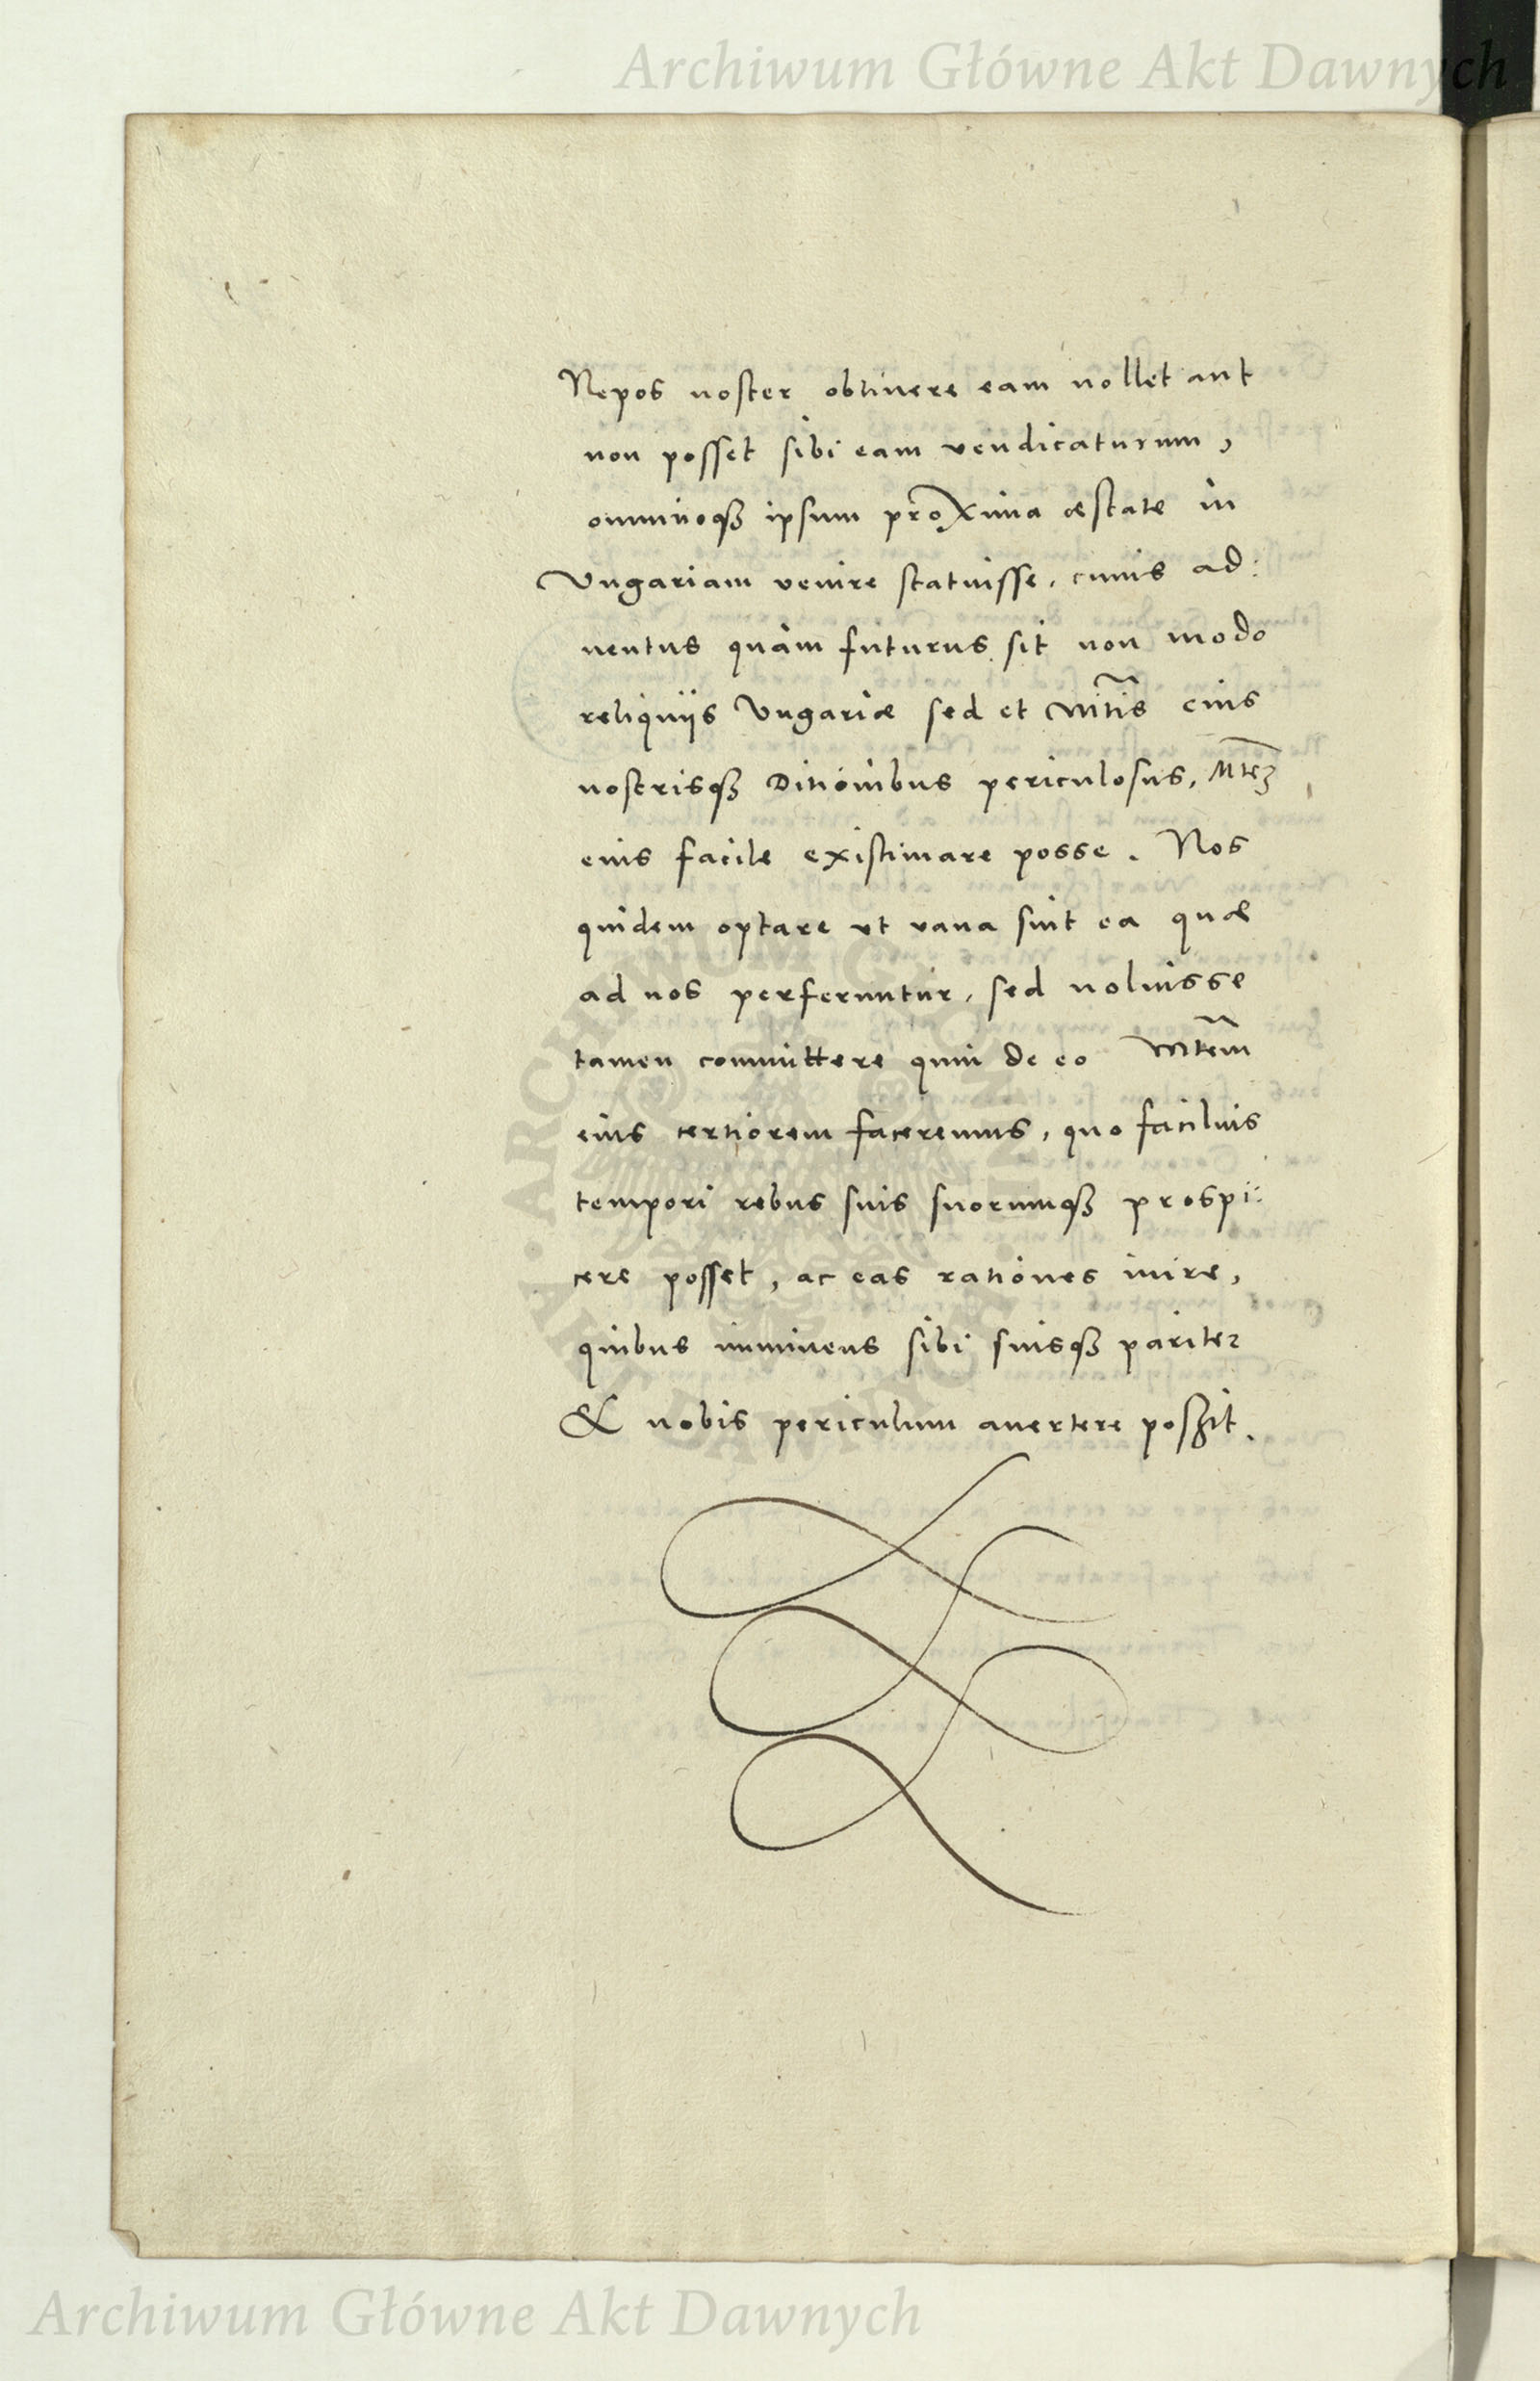 Archiwum Główne Akt Dawnych
Nepos noster obtinere eam nollet aut
non posset sibi eam vendicaturum,
omninoqꝫ ipsum proxima æstate in
Vngariam venire statuisse, cuius ad:
uentus quàm futurus sit non modo
reliquijs Vngariæ sed et Mtis eius
nostrisqꝫ Ditionibus periculosus, Mtez
eius facile existimare posse. Nos
quidem optare vt vana sint ea quæ
ad nos perferuntur, sed noluisse
tamen committere quin de eo Mtem
eius certiorem faceremus, quo facilius
tempori rebus suis suorumqꝫ prospi:
cere posset, ac eas rationes inire,
quibus imminens sibi suisqꝫ pariter
& nobis periculum auertere possit.
Archiwum Główne Akt Dawnych